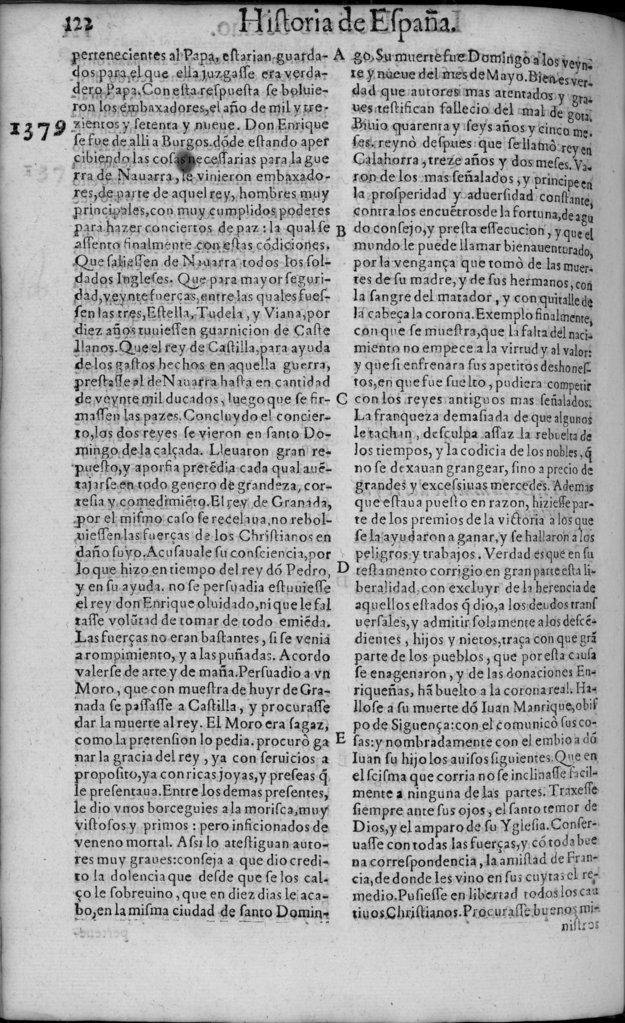 122 Historia de España.
pertenecientes al Papa, estarian guarda-
dos para el que ella juzgasse era verda-
dero Papa. Con esta respuesta se boluie-
ron los embaxadores, el año de mil y tre-
1379
zientos y setenta y nueue. Don Enrique
se fue de alli a Burgos. dõde estando aper
cibiendo las cosas necessarias para la gue
rra de Nauarra, le vinieron embaxado-
res, de parte de aquel rey, hombres muy
principales, con muy cumplidos poderes
para hazer conciertos de paz: la qual se
assento finalmente con estas cõdiciones.
Que saliessen de Nauarra todos los sol-
dados Ingleses. Que para mayor seguri-
dad, veynte fuerças, entre las quales fues-
sen las tres, Estella, Tudela, y Viana, por
diez años tuuiessen guarnicion de Caste
llanos. Que el rey de Castilla, para ayuda
de los gastos hechos en aquella guerra,
prestasse al de Nauarra hasta en cantidad
de veynte mil ducados, luego que se fir-
massen las pazes. Concluydo el concier-
to, los dos reyes se vieron en santo Do-
mingo de la calçada. Lleuaron gran re-
puesto, y aporfia pretẽdia cada qual auẽ-
tajarse en todo genero de grandeza, cor-
tesia y comedimiẽto. El rey de Granada,
por el mismo caso se recelaua, no rebol-
uiessen las fuerças de los Christianos en
daño suyo. Acusauale su consciencia, por
lo que hizo en tiempo del rey dõ Pedro,
y en su ayuda. no se persuadia estuuiesse
el rey don Enrique oluidado, ni que le fal
tasse volũtad de tomar de todo emiẽda.
Las fuerças no eran bastantes, si se venia
a rompimiento, y a las puñadas. Acordo
valerse de arte y de maña. Persuadio a vn
Moro, que con muestra de huyr de Gra-
nada se passasse a Castilla, y procurasse
dar la muerte al rey. El Moro era sagaz,
como la pretension lo pedia. procurò ga
nar la gracia del rey, ya con seruicios a
proposito, ya con ricas joyas, y preseas q̃
le presentaua. Entre los demas presentes,
le dio vnos borceguies a la morisca, muy
vistosos y primos: pero inficionados de
veneno mortal. Assi lo atestiguan auto-
res muy graues: conseja a que dio credi-
to la dolencia que desde que se los cal-
ço le sobreuino, que en diez dias le aca-
bo, en la misma ciudad de santo Domin-
A
B
C
D
E
go. Su muerte fue Domingo a los veyn-
te y nueue del mes de Mayo. Bien es ver-
dad que autores mas atentados y gra-
ues testifican fallecio del mal de gota.
Biuio quarenta y seys años y cinco me-
ses. reynò despues que se llamò rey en
Calahorra, treze años y dos meses. Va-
ron de los mas señalados, y principe en
la prosperidad y aduersidad constante,
contra los encuẽtros de la fortuna, de agu
do consejo, y presta essecucion, y que el
mundo le puede llamar bienauenturado,
por la vengança que tomò de las muer-
tes de su madre, y de sus hermanos, con
la sangre del matador, y con quitalle de
la cabeça la corona. Exemplo finalmente,
con que se muestra, que la falta del naci-
miento no empece a la virtud y al valor:
y que si enfrenara sus apetitos deshones-
tos, en que fue suelto, pudiera competir
con los reyes antiguos mas señalados.
La franqueza demasiada de que algunos
le tachan, desculpa assaz la rebuelta de
los tiempos, y la codicia de los nobles, q̃
no se dexauan grangear, sino a precio de
grandes y excessiuas mercedes. Ademas
que estaua puesto en razon, hiziesse par-
te de los premios de la victoria a los que
se la ayudaron a ganar, y se hallaron a los
peligros y trabajos. Verdad es que en su
testamento corrigio en gran parte esta li-
beralidad, con excluyr de la herencia de
aquellos estados q̃ dio, a los deudos transf
uersales, y admitir solamente a los descẽ-
dientes, hijos y nietos, traça con que grã
parte de los pueblos, que por esta causa
se enagenaron, y de las donaciones En-
riqueñas, hã buelto a la corona real. Ha-
llose a su muerte dõ Iuan Manrique, obis
po de Siguença: con el comunicò sus co-
sas: y nombradamente con el embio a dõ
Iuan su hijo los auisos siguientes. Que en
el scisma que corria no se inclinasse facil-
mente a ninguna de las partes. Traxesse
siempre ante sus ojos, el santo temor de
Dios, y el amparo de su Yglesia. Conser-
uasse con todas las fuerças, y cõ toda bue
na correspondencia, la amistad de Fran-
cia, de donde les vino en sus cuytas el re-
medio. Pusiesse en libertad todos los cau
tiuos Christianos. Procurasse buenos mi-
nistros